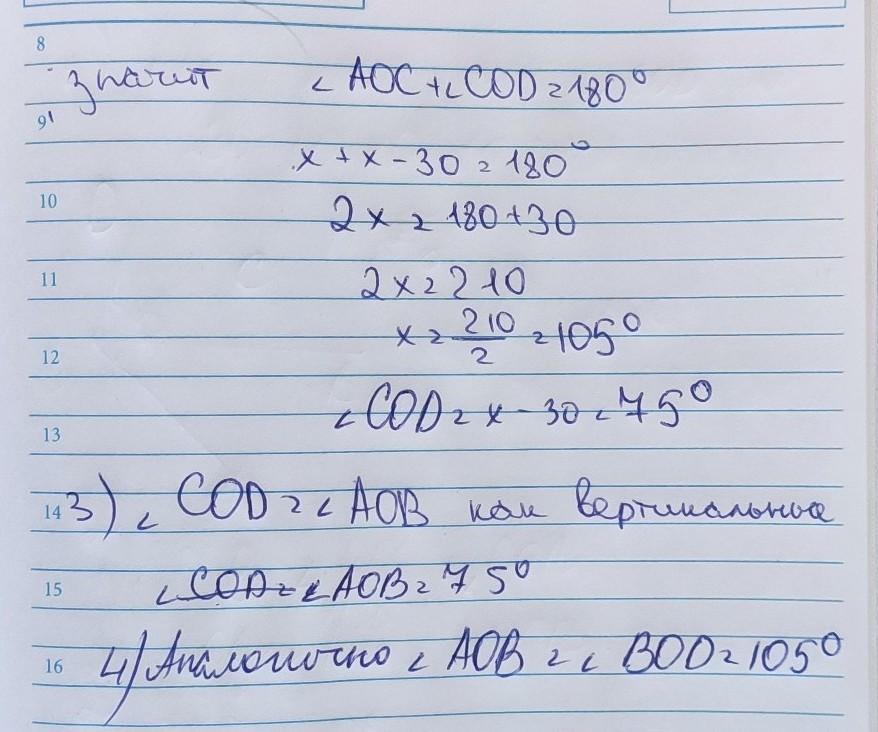 8
значит ∠AOC+∠COD=180°
9
x + x - 30 = 180°
10
2x = 180+30
11
2x = 210
x = 210/2 = 105°
12
∠COD = x - 30 = 75°
13
14 3) ∠COD = ∠AOB как вертикальные
15 ∠COD = ∠AOB = 75°
16 4) Аналогично ∠AOB = ∠BOD = 105°